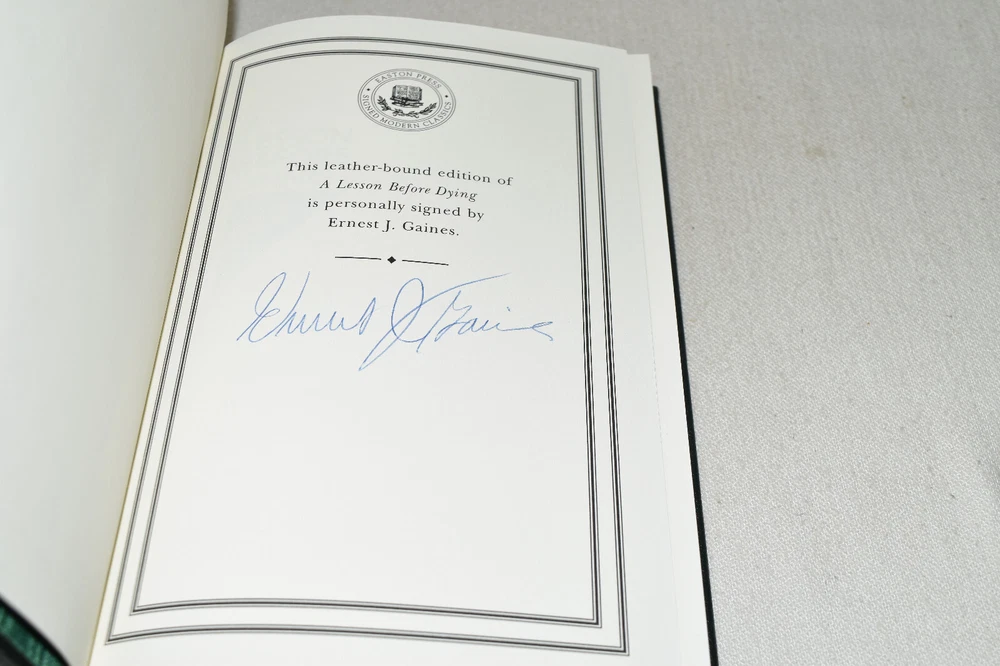 EASTON PRESS
SIGNED MODERN CLASSICS
This leather-bound edition of
A Lesson Before Dying
is personally signed by
Ernest J. Gaines.
Ernest J Gaines